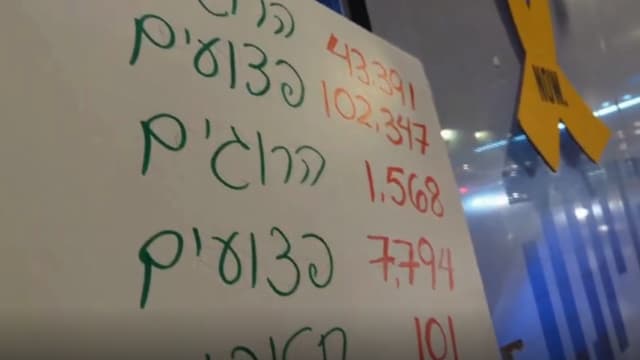 43,391
פצועים 102,347
הרוגים 1,568
פצועים 7,794
101
NOW.